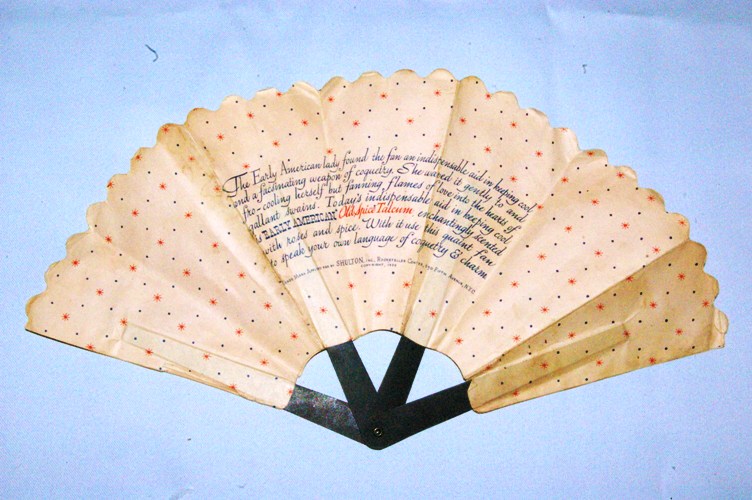 The Early American lady found the fan an indispensable aid in keeping cool
and a fascinating weapon of coquetry. She waved it gently to and
fro-cooling herself but fanning flames of love into the hearts of
gallant swains. Today's indispensable aid in keeping cool
is "EARLY AMERICAN" Old Spice Talcum enchantingly scented
with roses and spice. With it use this quaint fan
to speak your own language of coquetry & charm.
SHULTON, INC., Rockefeller Center, Fifth Avenue, N.Y.C.
COPYRIGHT,